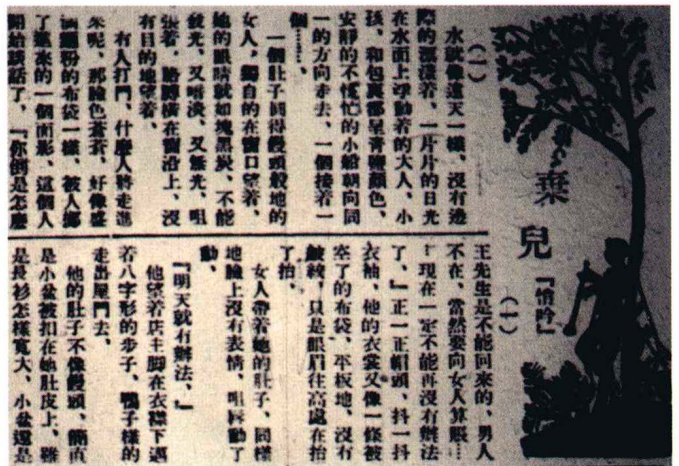 棄兒
『悄吟』
（一）
（一）
水就像遠天一樣、沒有邊
際的漂漾着、一片片的日光
在水面上浮動着的大人、小
孩、和包裹都呈青藍顏色、
安靜的不慌忙的小船朝向同
一的方向走去、一個接着一
個………、
一個肚子圓得饅頭般地的
女人、獨自的在窗口望着、
她的眼睛就如塊黑炭、不能
發光、又暗淡、又無光、咀
張着、胳膊橫在窗沿上、沒
有目的地望着、
有人打門、什麼人將走進
來呢、那臉色蒼蒼、好像盛
滿麵粉的布袋一樣、被人挪
了進來的一個面影、這個人
開始談話了、「你倒是怎麼
王先生是不能回來的、男人
不在、當然要向女人算賬…
！現在一定不能再沒有辦法
了、」正一正帽頭、抖一抖
衣袖、他的衣裳又像一條被
空了的布袋、平板地、沒有
皺紋、只是眼眉往高處在抬
了抬、
女人帶着她的肚子、同樣
地臉上沒有表情、咀唇動了
動、
『明天就有辦法、』
他望着店主脚在衣襟下邁
着八字形的步子、鴨子樣的
走出屋門去、
他的肚子不像饅頭、簡直
是小盆被扣在她肚皮上、雖
是長衫怎樣寬大、小盆還是